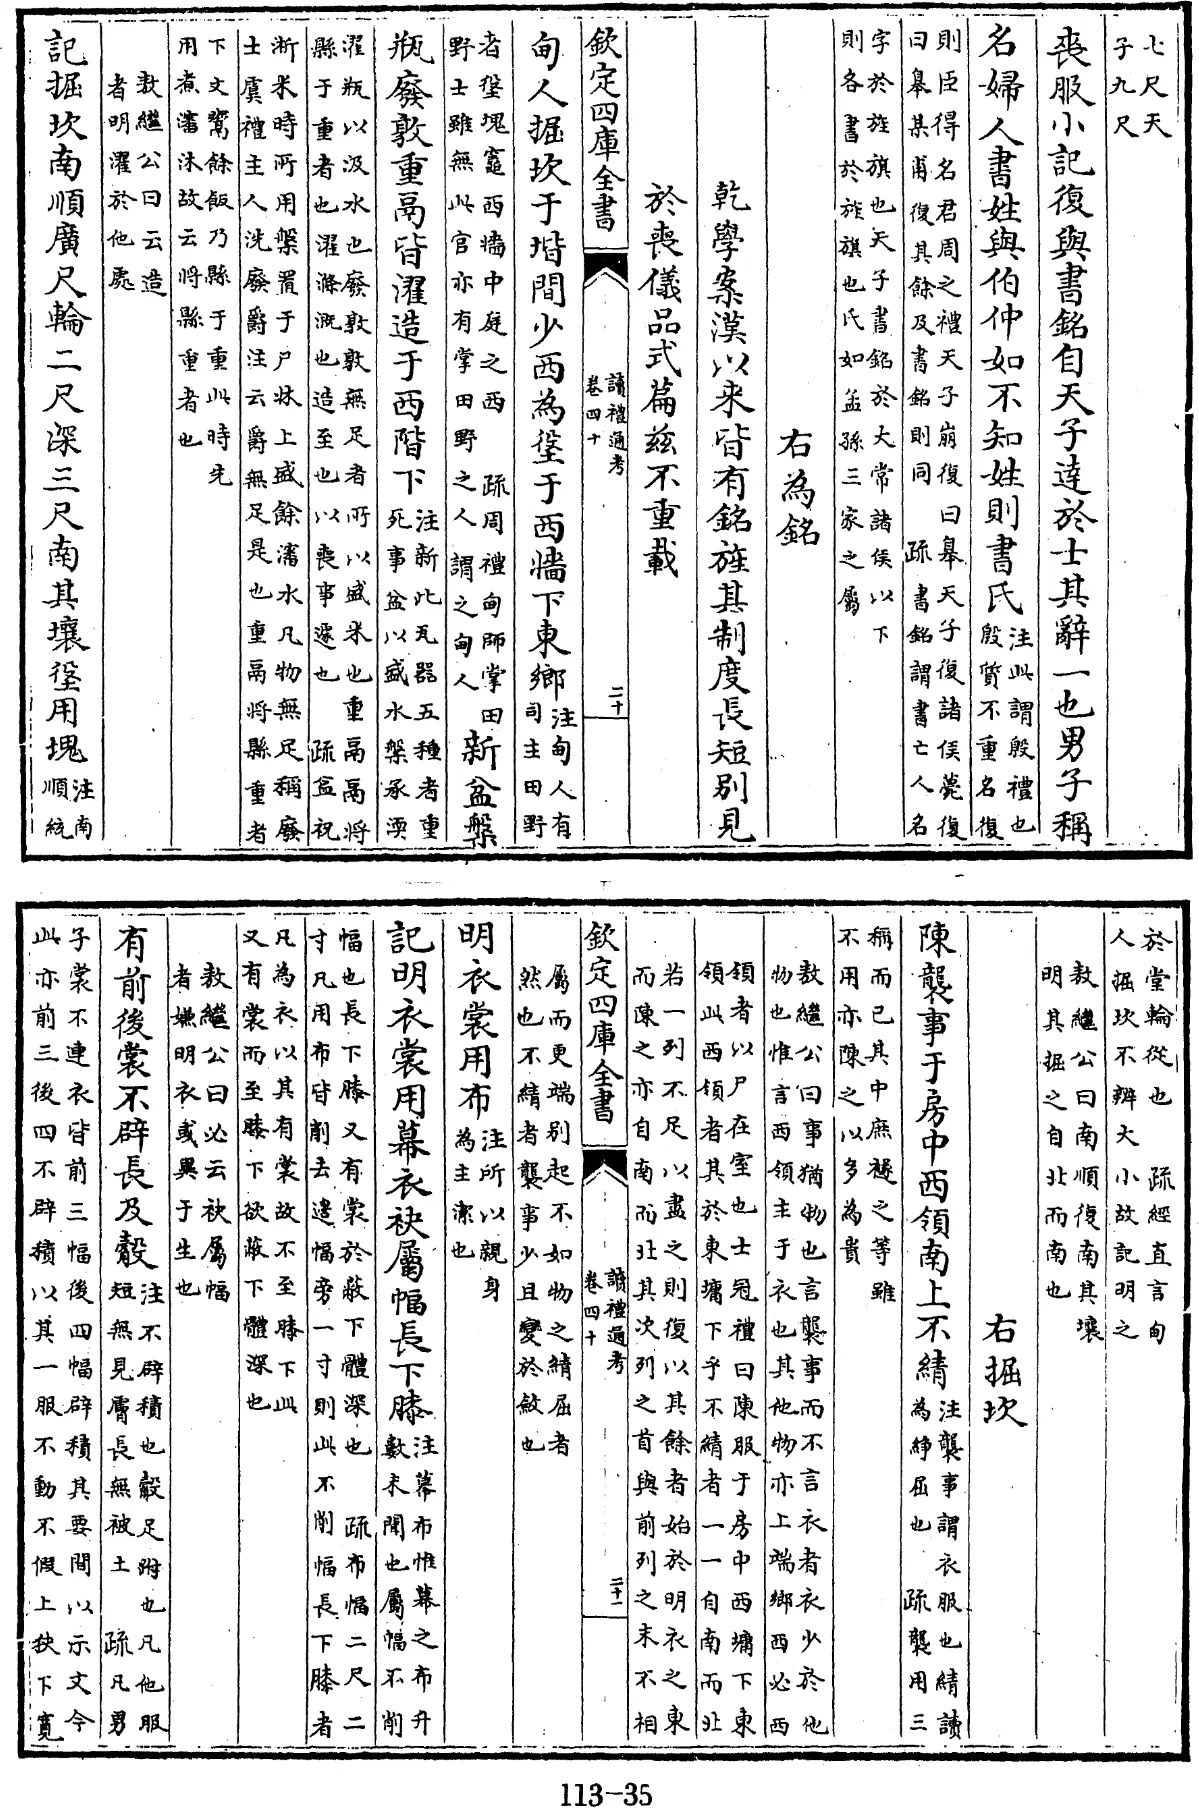 七尺天
子九尺
喪服小記復與書銘自天子達於士其辭一也男子稱
名婦人書姓與伯仲如不知姓則書氏注此謂殷禮也
殷質不重名復
則臣得名君周之禮天子崩復曰皋天子復諸侯薨復
曰皋某甫復其餘及書銘則同　疏書銘謂書亡人名
字於旌旗也天子書銘於大常諸侯以下
則各書於旌旗也氏如孟孫三家之屬
右為銘
乾學案漢以來皆有銘旌其制度長短別見
於喪儀品式篇茲不重載
欽定四庫全書
讀禮通考
卷四十
二十
甸人掘坎于階間少西為垼于西牆下東鄉注甸人有
司主田野
者垼塊竈西牆中庭之西　疏周禮甸師掌田
野士雖無此官亦有掌田野之人謂之甸人新盆槃
瓶廢敦重鬲皆濯造于西階下注新此瓦器五種者重
死事盆以盛水槃承渜
濯瓶以汲水也廢敦敦無足者所以盛米也重鬲鬲將
縣于重者也濯滌溉也造至也以喪事遽也　疏盆祝
淅米時所用槃置于尸牀上盛餘潘水凡物無足稱廢
士虞禮主人洗廢爵注云爵無足是也重鬲將縣重者
下文鬻餘飯乃縣于重此時先
用煮潘沐故云將縣重者也
敖繼公曰云造
者明濯於他處
記掘坎南順廣尺輪二尺深三尺南其壤垼用塊注南
順統
於堂輪從也　疏經直言甸
人掘坎不辨大小故記明之
敖繼公曰南順復南其壤
明其掘之自北而南也
右掘坎
陳襲事于房中西領南上不綪注襲事謂衣服也綪讀
為絣屈也　疏襲用三
稱而已其中庶襚之等雖
不用亦陳之以多為貴
敖繼公曰事猶物也言襲事而不言衣者衣少於他
物也惟言西領主于衣也其他物亦上端鄉西必西
領者以尸在室也士冠禮曰陳服于房中西墉下東
領此西領者其於東墉下乎不綪者一一自南而北
若一列不足以盡之則復以其餘者始於明衣之東
而陳之亦自南而北其次列之首與前列之末不相
欽定四庫全書
讀禮通考
卷四十
二十一
屬而更端別起不如物之綪屈者
然也不綪者襲事少且變於斂也
明衣裳用布注所以親身
為主潔也
記明衣裳用幕衣袂屬幅長下膝注幕布惟幕之布升
數未聞也屬幅不削
幅也長下膝又有裳於蔽下體深也　疏布幅二尺二
寸凡用布皆削去邊幅旁一寸則此不削幅長下膝者
凡為衣以其有裳故不至膝下此
又有裳而至膝下欲蔽下體深也
敖繼公曰必云袂屬幅
者嫌明衣或異于生也
有前後裳不辟長及觳注不辟積也觳足跗也凡他服
短無見膚長無被土　疏凡男
子裳不連衣皆前三幅後四幅辟積其要間以示文今
此亦前三後四不辟積以其一服不動不假上狹下寬
113-35